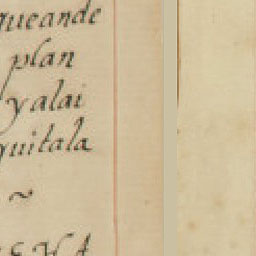 queande
plan
y alai
quitala
~